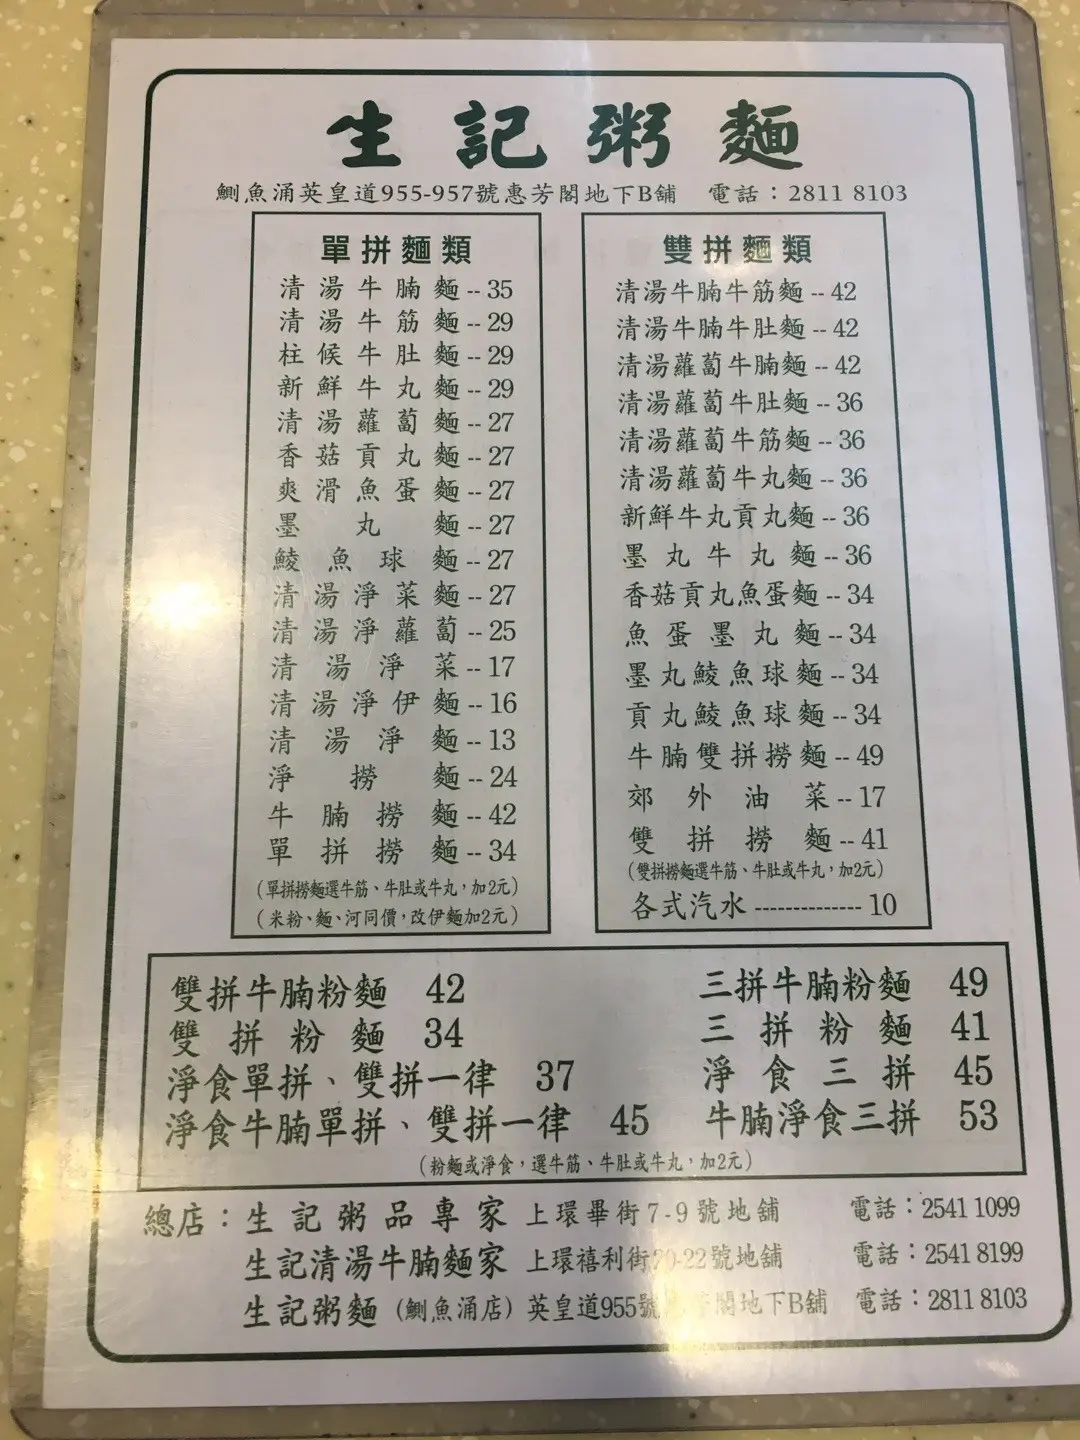 生記粥麵
鰂魚涌英皇道955-957號惠芳閣地下B舖 電話：2811 8103
單拼麵類
清湯牛腩麵--35
清湯牛筋麵--29
柱候牛肚麵--29
新鮮牛丸麵--29
清湯蘿蔔麵--27
香菇貢丸麵--27
爽滑魚蛋麵--27
墨丸麵--27
鯪魚球麵--27
清湯淨菜麵--27
清湯淨蘿蔔--25
清湯淨菜--17
清湯淨伊麵--16
清湯淨麵--13
淨撈麵--24
牛腩撈麵--42
單拼撈麵--34
（單拼撈麵選牛筋、牛肚或牛丸，加2元）
（米粉、麵、河同價，改伊麵加2元）
雙拼麵類
清湯牛腩牛筋麵--42
清湯牛腩牛肚麵--42
清湯蘿蔔牛腩麵--42
清湯蘿蔔牛肚麵--36
清湯蘿蔔牛筋麵--36
清湯蘿蔔牛丸麵--36
新鮮牛丸貢丸麵--36
墨丸牛丸麵--36
香菇貢丸魚蛋麵--34
魚蛋墨丸麵--34
墨丸鯪魚球麵--34
貢丸鯪魚球麵--34
牛腩雙拼撈麵--49
郊外油菜--17
雙拼撈麵--41
（雙拼撈麵選牛筋、牛肚或牛丸，加2元）
各式汽水--------------10
雙拼牛腩粉麵 42
雙拼粉麵 34
淨食單拼、雙拼一律 37
淨食牛腩單拼、雙拼一律 45
三拼牛腩粉麵 49
三拼粉麵 41
淨食三拼 45
牛腩淨食三拼 53
（粉麵或淨食，選牛筋、牛肚或牛丸，加2元）
總店：生記粥品專家 上環畢街7-9號地舖 電話：2541 1099
生記清湯牛腩麵家 上環禧利街20-22號地舖 電話：2541 8199
生記粥麵（鰂魚涌店）英皇道955號 芳閣地下B舖 電話：2811 8103